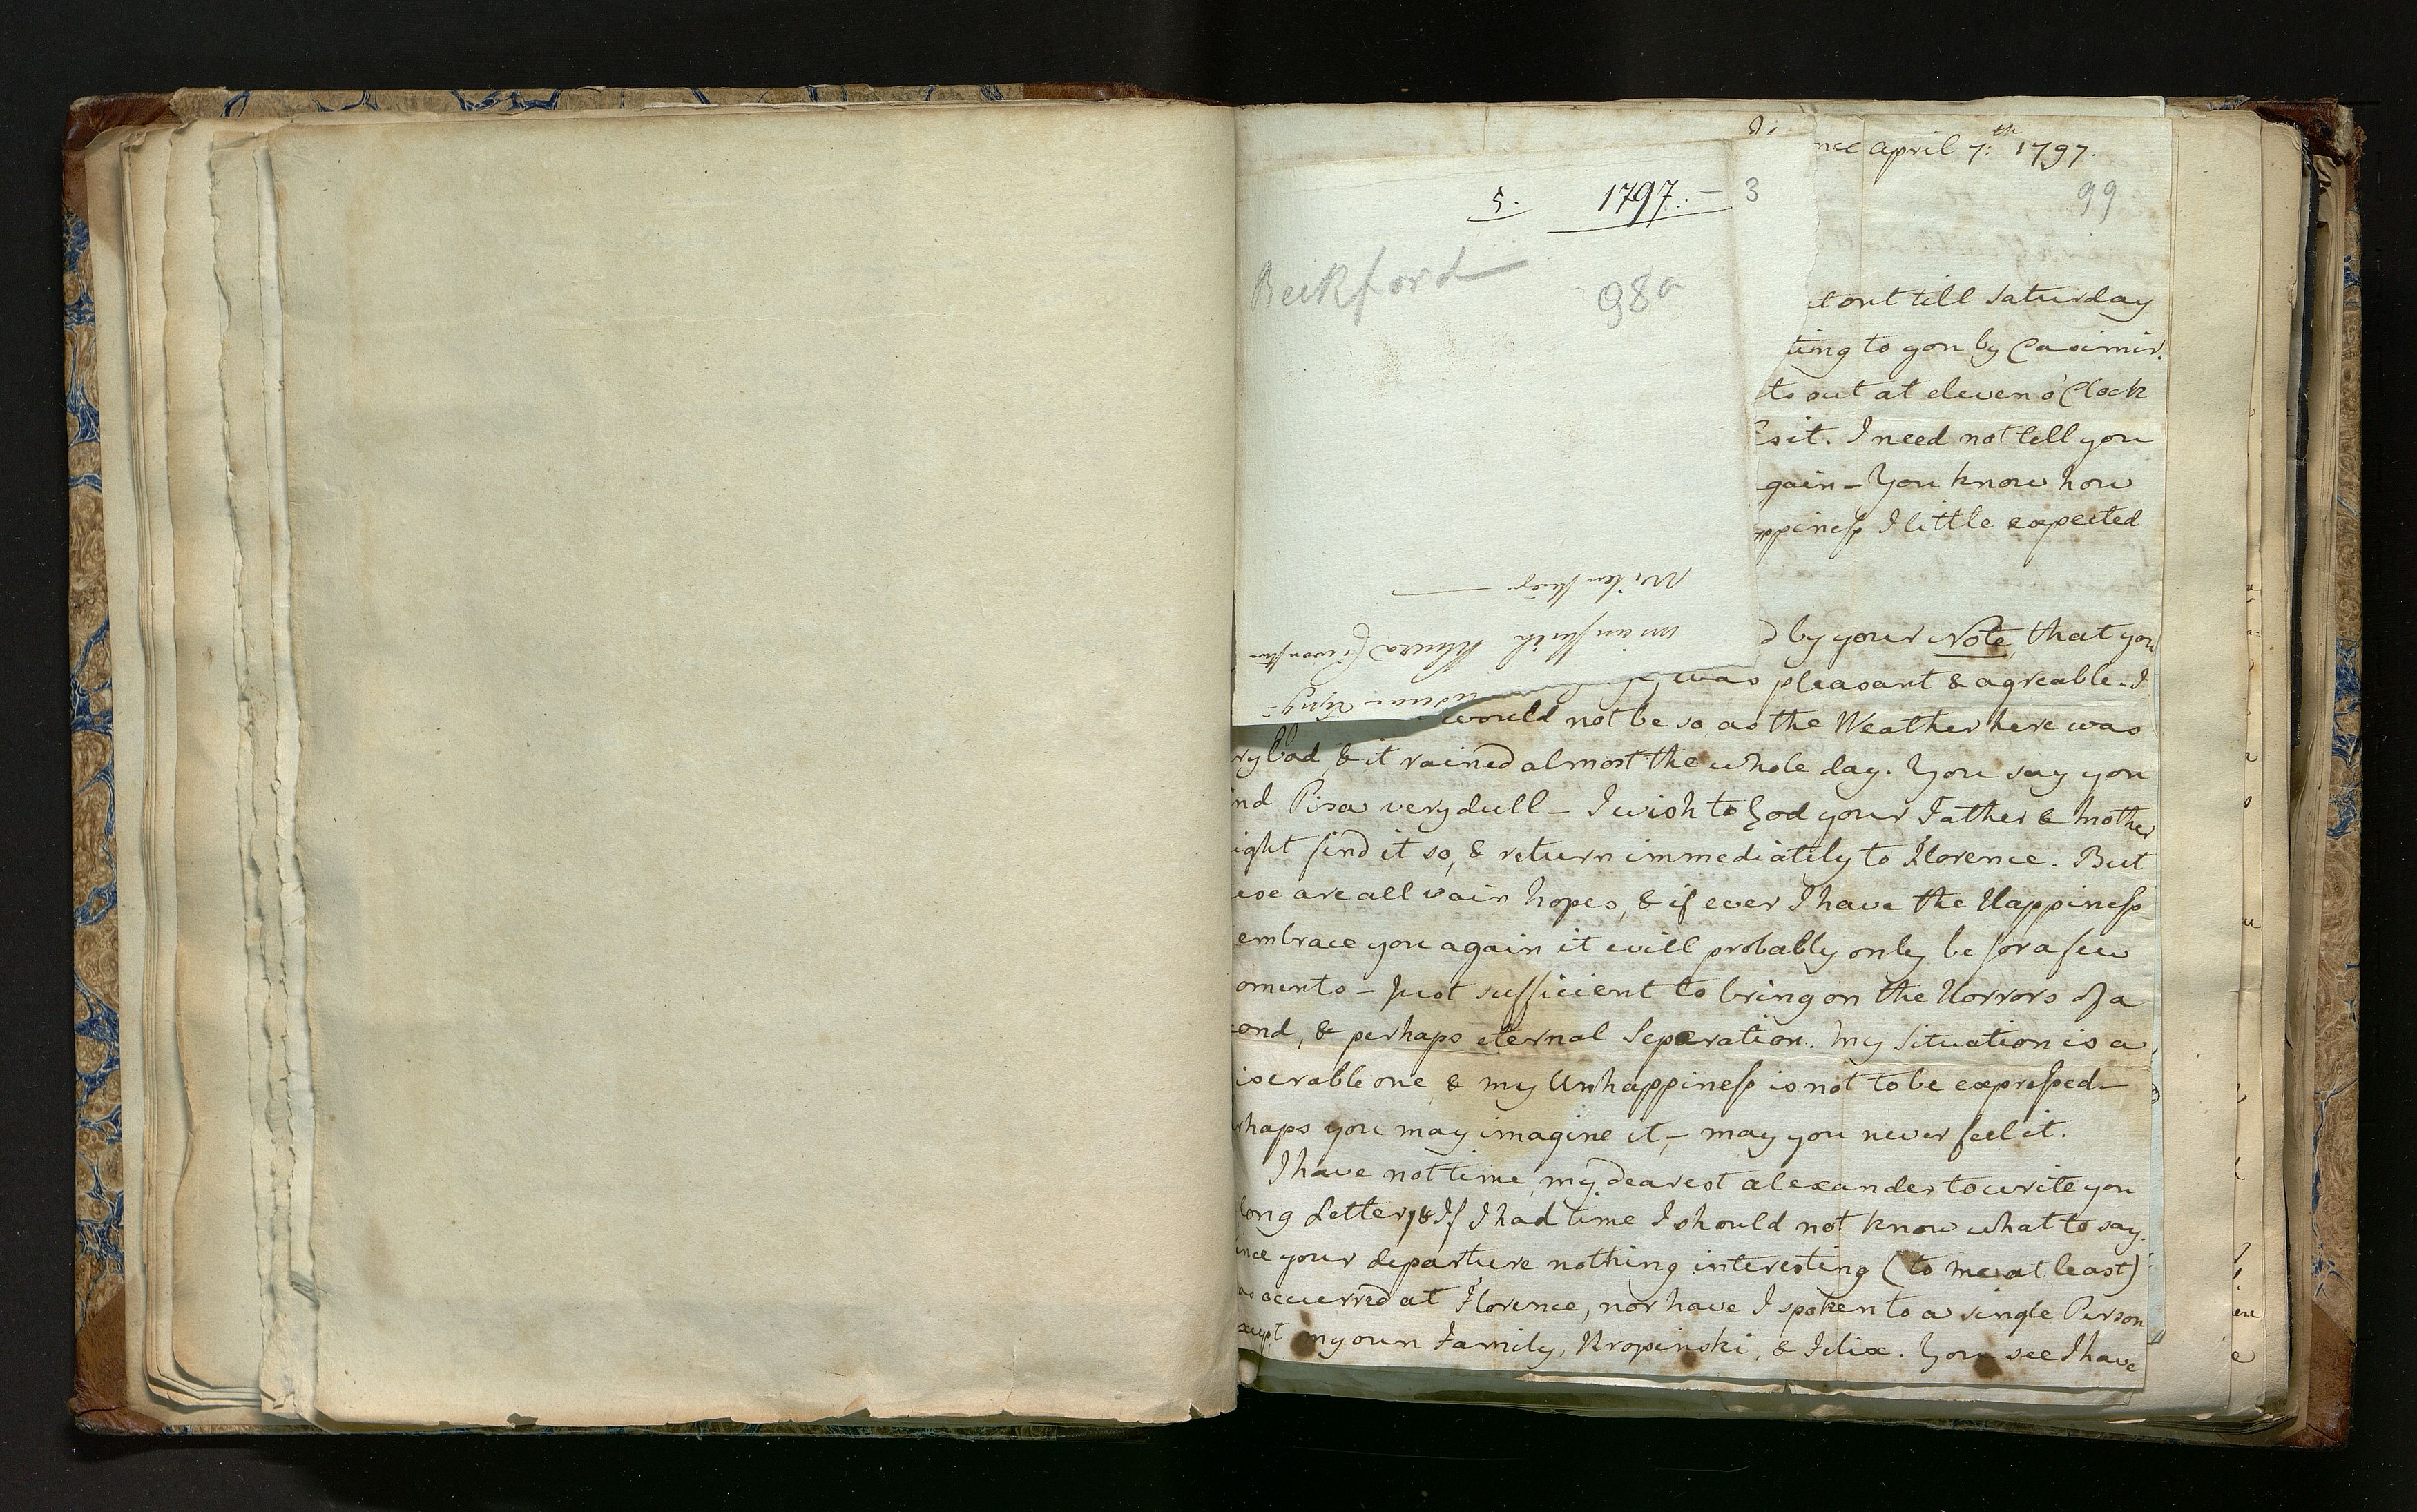 nce april 7:th 1797.
5. 1797.- 3
99
Beckford 98a
out till Saturday
ting to you by Casimir.
to out at eleven o'Clock
I need not tell you
gain - You know how
ppiness I little expected
by your Note, that you
was pleasant & agreable. I
would not be so as the Weather here was
ry bad, & it rained almost the whole day. You say you
nd Pisa very dull - I wish to God your Father & Mother
ight find it so, & return immediately to Florence. But
ese are all vain hopes, & if ever I have the Happiness
embrace you again it will probably only be for a few
oments - Just sufficient to bring on the Horrors of a
ond, & perhaps eternal Separation. My Situation is a
iserable one, & my Unhappiness is not to be expressed -
rhaps you may imagine it, - may you never feel it.
I have not time, my dearest alexander to write you
long Letter, & If I had time I should not know what to say.
ince your departure nothing interesting (to me at least)
as occurred at Florence, nor have I spoken to a single Person
xcept my own Family, Kropinski, & Felix. You see I have